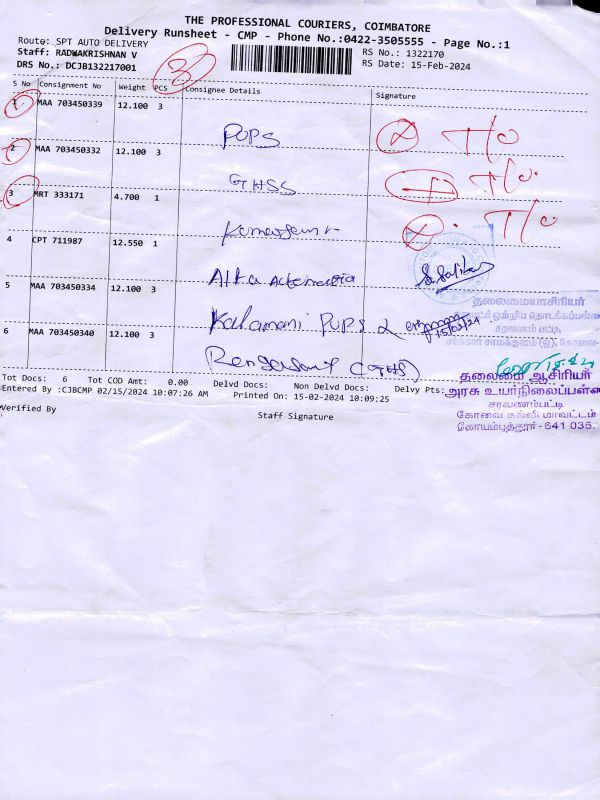 THE PROFESSIONAL COURIERS, COIMBATORE
Delivery Runsheet - CMP - Phone No.:0422-3505555 - Page No.:1
Route: SPT AUTO DELIVERY
RS No.: 1322170
Staff: RADHAKRISHNAN V
RS Date: 15-Feb-2024
DRS No.: DCJB132217001
3
S No Consignment No Weight PCS Consignee Details Signature
1 MAA 703450339 12.100 3
PUPS T/o
2 MAA 703450332 12.100 3
GHSS T/o
3 MRT 333171 4.700 1
T/o
4 CPT 711987 12.550 1
Alfa
5 MAA 703450334 12.100 3
Kalamani PUPS 15/02/24
தலைமையாசிரியர்
சரவணம் பட்டி
6 MAA 703450340 12.100 3
(GHS)
Tot Docs: 6 Tot COD Amt: 0.00 Delvd Docs: Non Delvd Docs: Delvy Pts:
Entered By :CJBCMP 02/15/2024 10:07:26 AM Printed On: 15-02-2024 10:09:25
தலைமை ஆசிரியர்
அரசு உயர்நிலைப்பள்
சரவணம்பட்டி
கோவை கல்வி மாவட்டம்
கோயம்புத்தூர்-641 035.
Verified By
Staff Signature